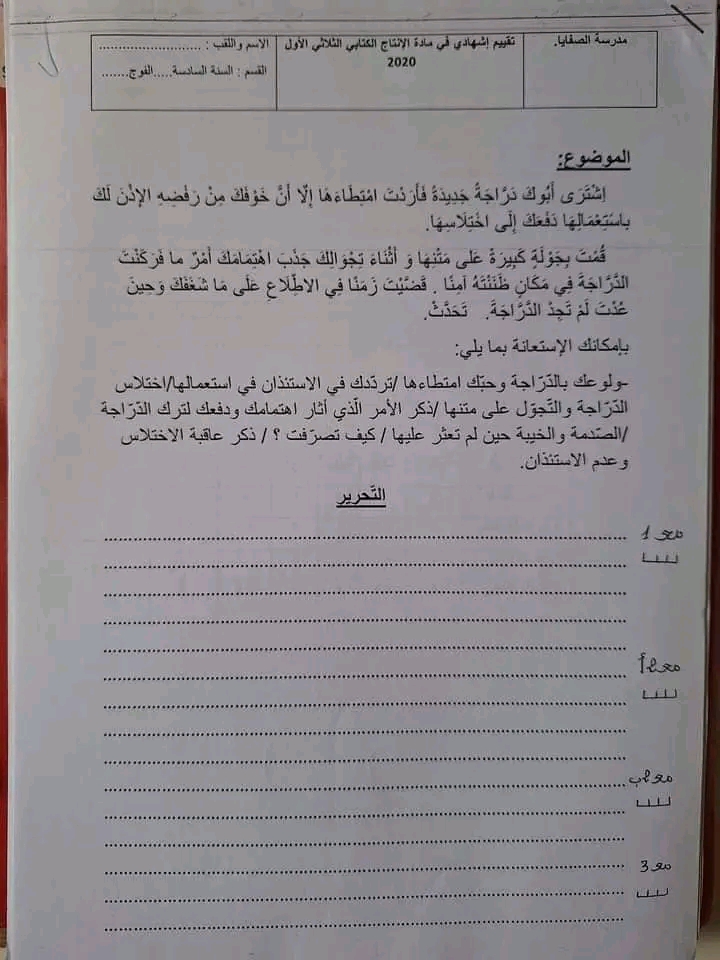 مدرسة الصفايا.
تقييم إشهادي في مادة الإنتاج الكتابي الثلاثي الأول
2020
الاسم واللقب : ..........................
القسم : السنة السادسة.....الفوج.......
الموضوع:
اِشْتَرَى أَبُوكَ دَرَّاجَةً جَدِيدَةً فَأَرَدْتَ امْتِطَاءَهَا إِلَّا أَنَّ خَوْفَكَ مِنْ رَفْضِهِ الإِذْنَ لَكَ
بِاسْتِعْمَالِهَا دَفَعَكَ إِلَى اخْتِلَاسِهَا.
قُمْتَ بِجَوْلَةٍ كَبِيرَةٍ عَلَى مَتْنِهَا وَ أَثْنَاءَ تِجْوَالِكَ جَذَبَ اهْتِمَامَكَ أَمْرٌ ما فَرَكَنْتَ
الدَّرَّاجَةَ فِي مَكَانٍ ظَنَنْتَهُ آمِنًا . قَضَّيْتَ زَمَنًا فِي الاطِّلَاعِ عَلَى مَا شَغَفَكَ وَحِينَ
عُدْتَ لَمْ تَجِدْ الدَّرَّاجَةَ. تَحَدَّثْ.
بإمكانك الإستعانة بما يلي:
-ولوعك بالدّرّاجة وحبّك امتطاءها /تردّدك في الاستئذان في استعمالها/اختلاس
الدّرّاجة والتّجوّل على متنها /ذكر الأمر الّذي أثار اهتمامك ودفعك لترك الدّرّاجة
/الصّدمة والخيبة حين لم تعثر عليها / كيف تصرّفت ؟ / ذكر عاقبة الاختلاس
وعدم الاستئذان.
التّحرير
مع 1
مع 2 أ
مع 2 ب
مع 3